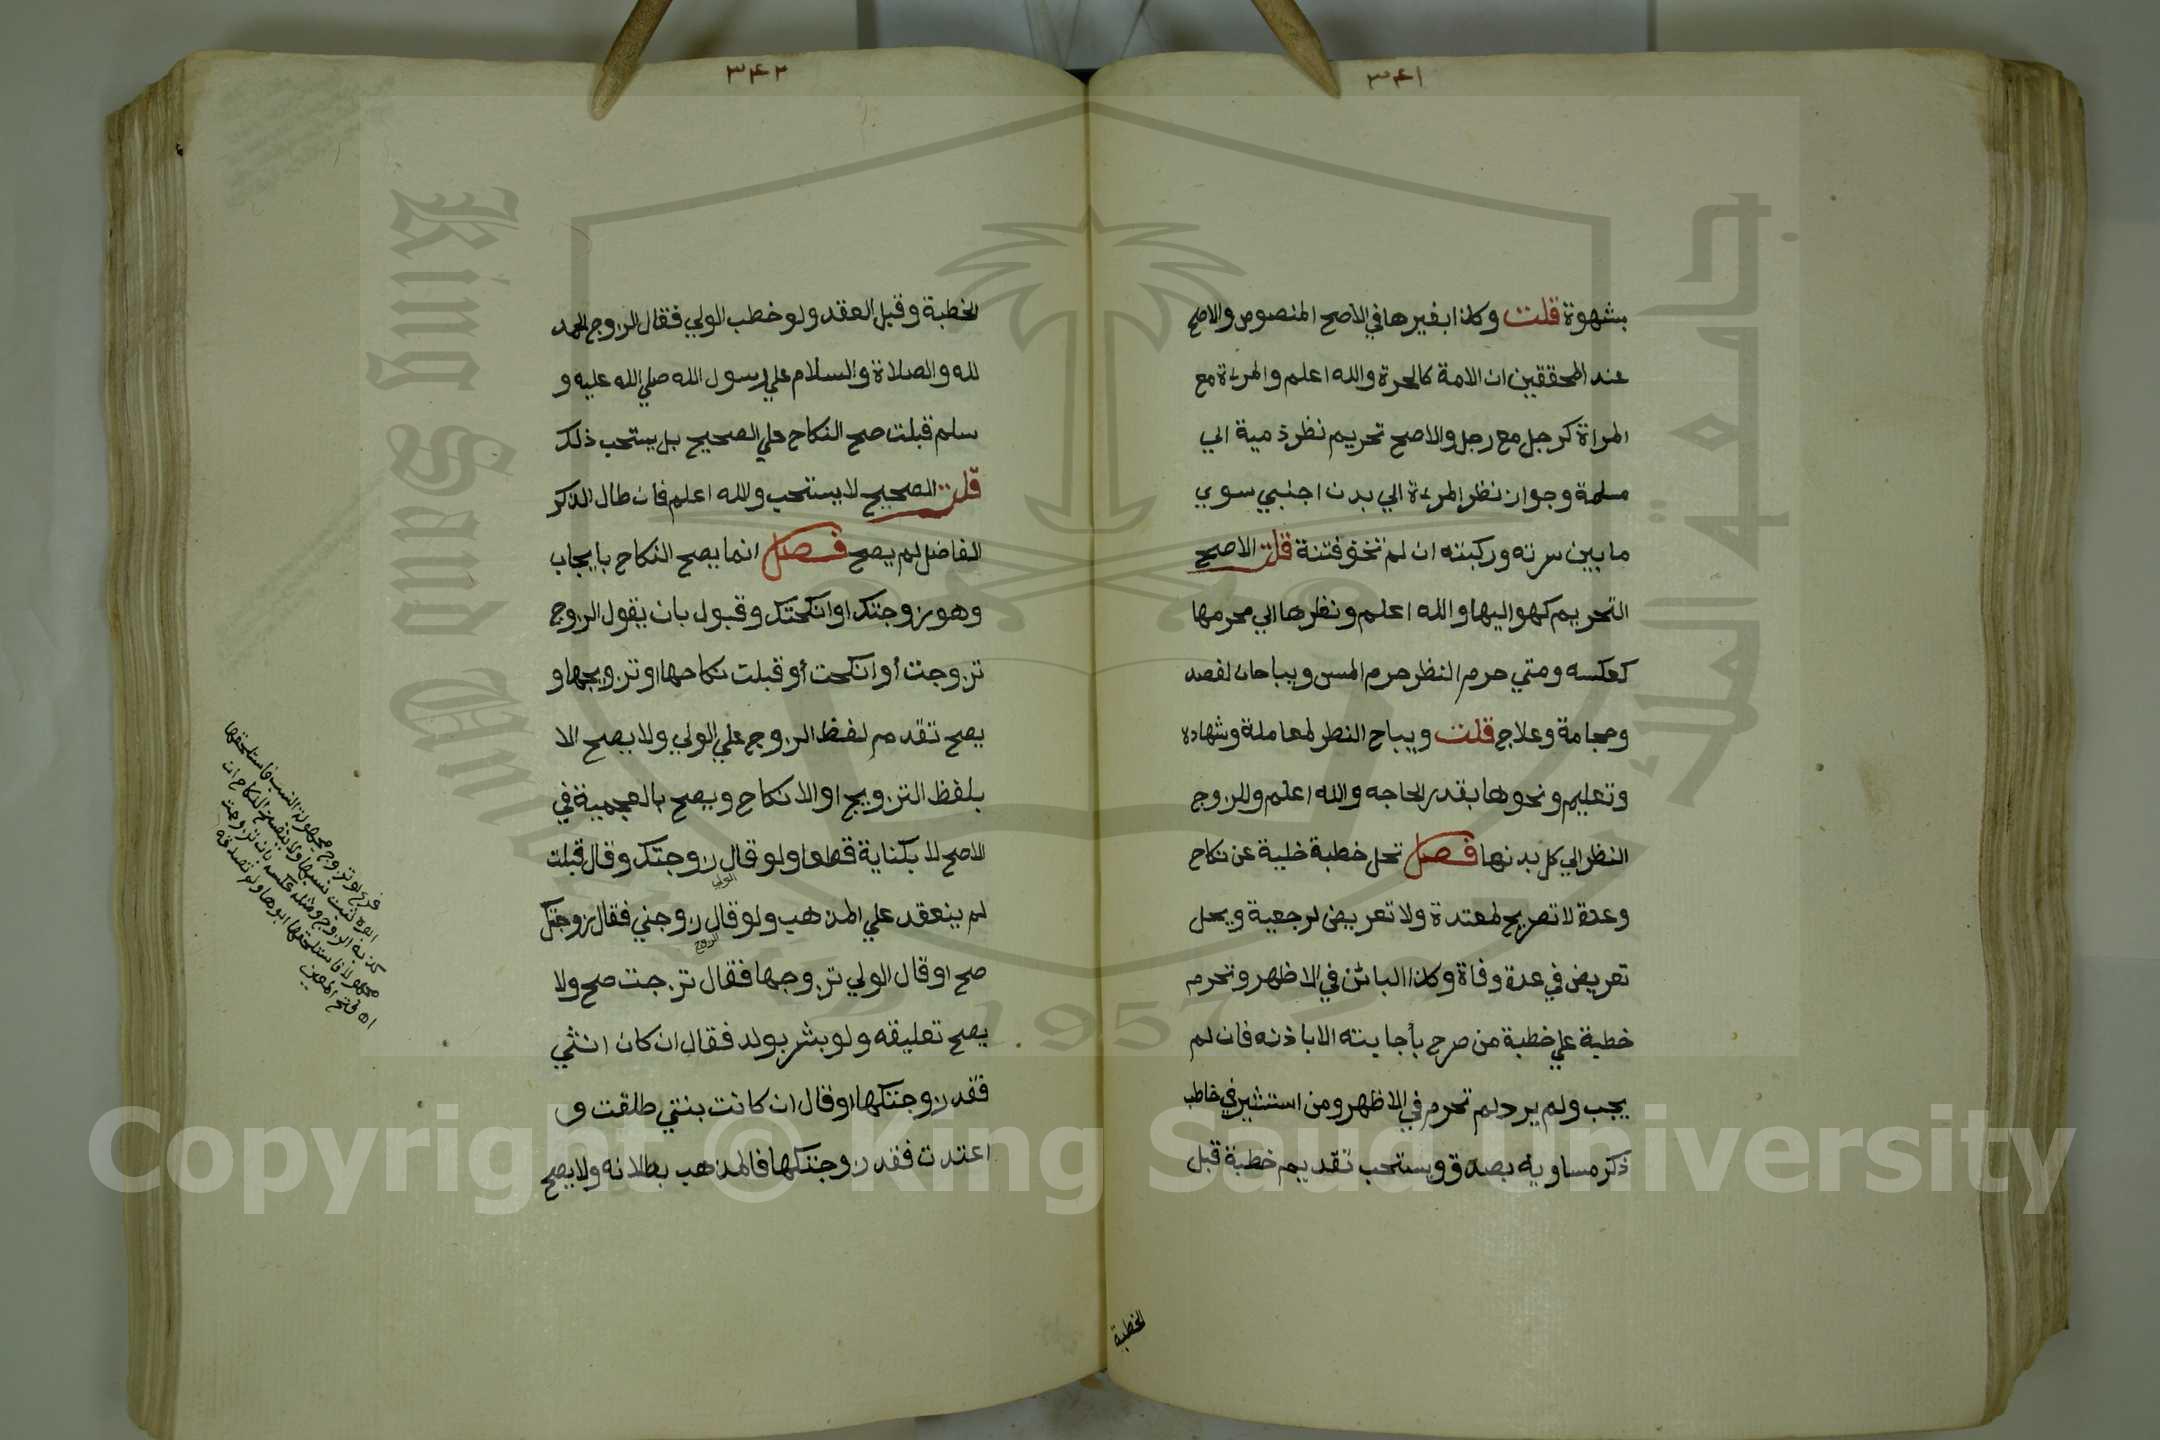 ٣٤١
بشهوة قلت وكذا بغيرها في الاصح المنصوص والاصح
عند المحققين ان الامة كالحرة والله اعلم والمرءة مع
المراة كرجل مع رجل والاصح تحريم نظر ذمية الي
مسلمة وجواز نظر المرءة الي بدن اجنبي سوي
ما بين سرته وركبته ان لم تخف فتنة قلت الاصح
التحريم كهو اليها والله اعلم ونظرها الي محرمها
كعكسه ومتي حرم النظر حرم المس ويباحان لفصد
وحجامة وعلاج قلت ويباح النظر لمعاملة وشهادة
وتعليم ونحوها بقدر الحاجه والله اعلم وللزوج
النظر الي كل بدنها فصل تحل خطبة خلية عن نكاح
وعدة لا تصريح لمعتدة ولا تعريض لرجعية ويحل
تعريض في عدة وفاة وكذا البائن في الاظهر وتحرم
خطبة علي خطبة من صرح بأجابته الا باذنه فان لم
يجب ولم يرد لم تحرم في الاظهر ومن استشير في خاطب
ذكر مساويه بصدق ويستحب تقديم خطبة قبل
الخطبة
٣٤٢
الخطبة وقبل العقد ولو خطب الولي فقال الزوج الحمد
لله والصلاة والسلام علي رسول الله صلي الله عليه و
سلم قبلت صح النكاح علي الصحيح بل يستحب ذلك
قلت الصحيح لا يستحب والله اعلم فان طال الذكر
الفاضل لم يصح فصل انما يصح النكاح بايجاب
وهو زوجتك او انكحتك وقبول بان يقول الزوج
تزوجت أو انكحت أو قبلت نكاحها او تزويجها و
يصح تقدم لفظ الزوج علي الولي ولا يصح الا
بلفظ التزويج او الانكاح ويصح بالعجمية في
الاصح لا بكناية قطعا ولو قال زوجتك وقال قبلت
الولي
لم ينعقد علي المذهب ولو قال زوجني فقال زوجتك
الزوج
صح او قال الولي تزوجها فقال تزجت صح ولا
يصح تعليقه ولو بشر بولد فقال ان كان انثي
فقد زوجتكها او قال ان كانت بنتي طلقت و
اعتدت فقد زوجتكها فالمذهب بطلانه ولا يصح
فرع لو تزوج مجهولة النسب فاستلحقها
ابوه ثبت نسبها ولا ينفسخ النكاح ان
كذبه الزوج ومثله عكسه بان تزوجت
مجهولا فاستلحقه ابوها ولم تصدقه
اه فتح المعين
جامعة الملك
King Saud University
1957
Copyright © King Saud University